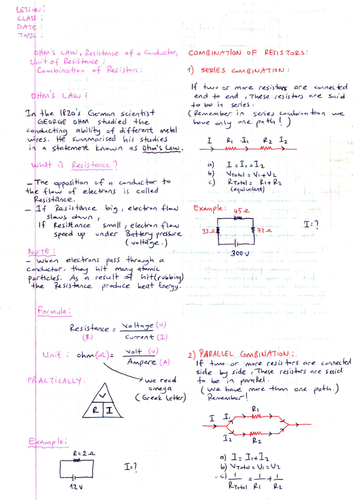 LESSON:
CLASS:
DATE:
TOPIC:
OHM'S LAW, Resistance of a Conductor,
Unit of Resistance:
Combination of Resistors:
OHM'S LAW:
In the 1820's German scientist
GEORGE OHM studied the
conducting ability of different metal
wires. He summarised his studies
in a statement known as Ohm's Law.
What is Resistance?
- The opposition of a conductor to
the flow of electrons is called
Resistance.
- If Resistance big, electron flow
slows down,
If Resistance small, electron flow
speed up under Battery pressure
(voltage.)
Note:
- When electrons pass through a
conductor. they hit many atomic
particles. As a result of hit(rubbing)
the Resistance produce heat Energy.
Formula:
Resistance = Voltage (V)
(R) Current (I)
Unit: ohm (Ω) = Volt (V)
Ampere (A)
PRACTICALLY:
we read
omega
(Greek letter)
V
R I
Example:
R = 2Ω
I = ?
12V
COMBINATION OF RESISTORS:
1) SERIES COMBINATION:
If two or more resistors are connected
end to end, These resistors are said
to be in series.
(Remember in series combination we
have only one path!)
I R1 I1 R2 I2
a) I = I1 = I2
b) VTotal = V1 + V2
c) RTotal = R1 + R2
(equivalent)
Example:
45Ω
33Ω
72Ω
I = ?
300V
2) PARALLEL COMBINATION:
If two or more resistors are connected
side by side, These resistors are said
to be in parallel.
(We have more than one path.)
Remember!
I I1 R1
I2 R2
a) I = I1 + I2
b) VTotal = V1 = V2
c) 1/RTotal = 1/R1 + 1/R2